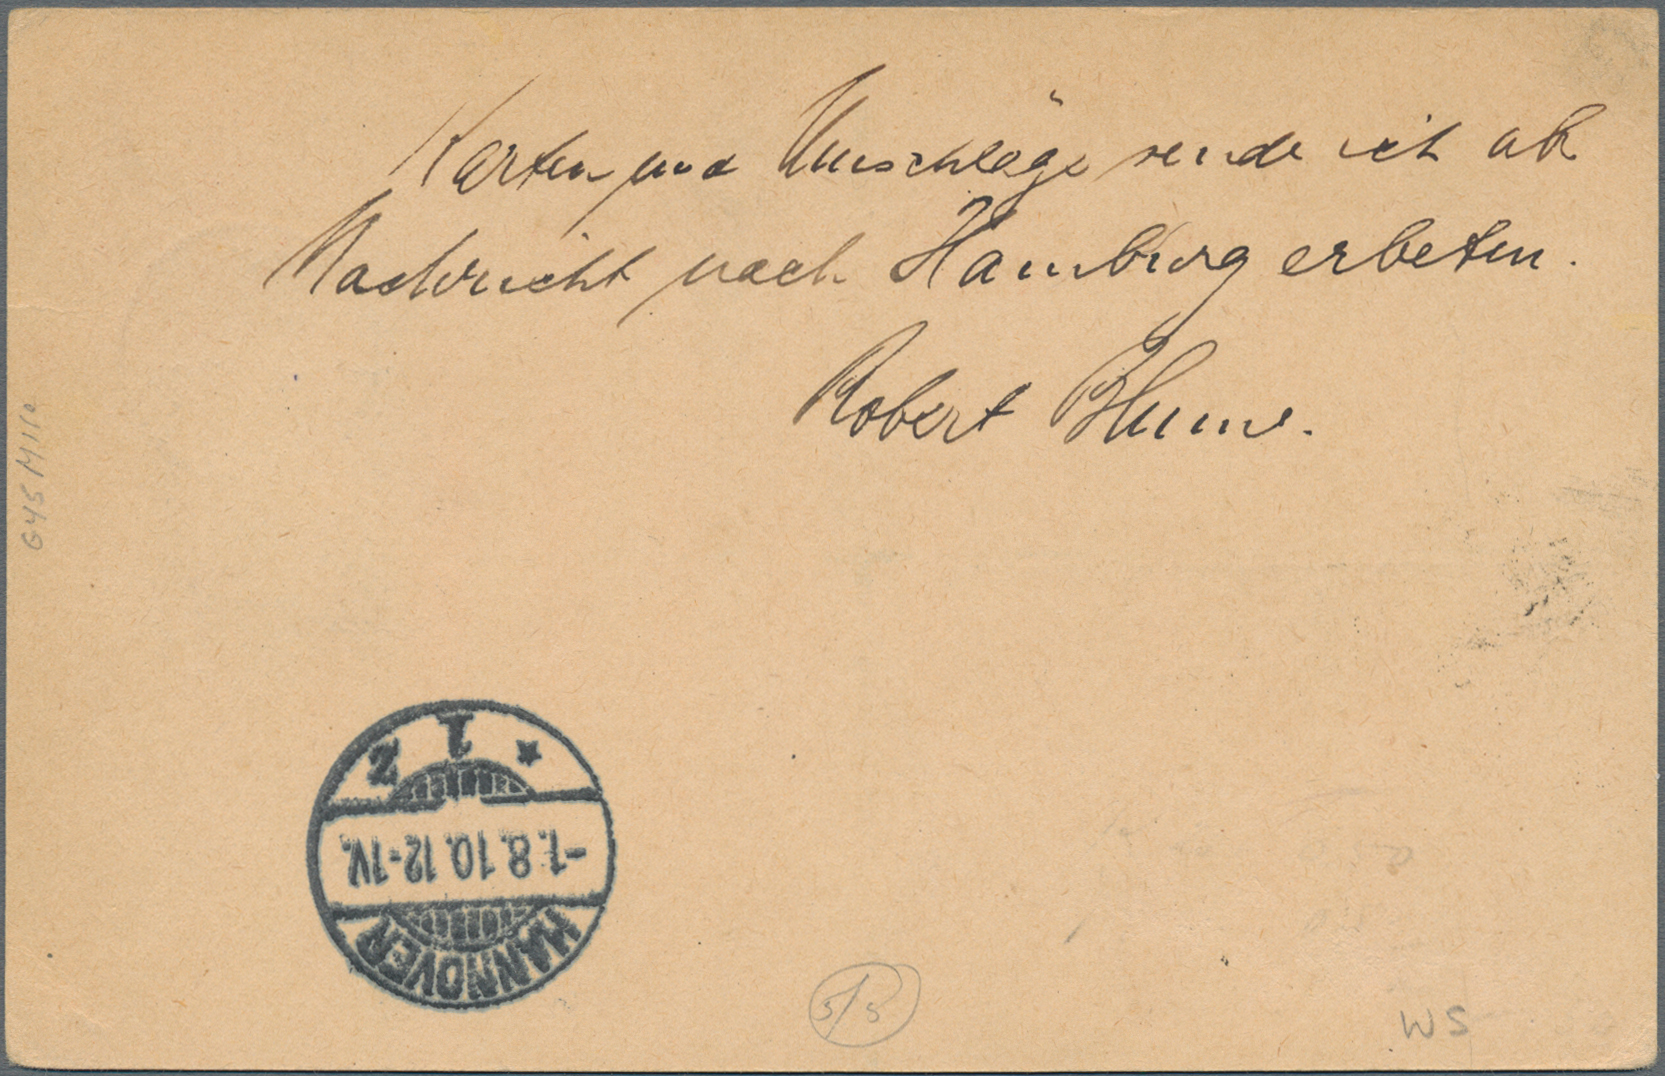 Karten und Umschläge sende ich ab
Nachricht nach Hamburg erbeten.
Robert Blume.
G45 M110
* 1 Z
-1.8.10.12-1V.
HANNOVER
5/5
WS